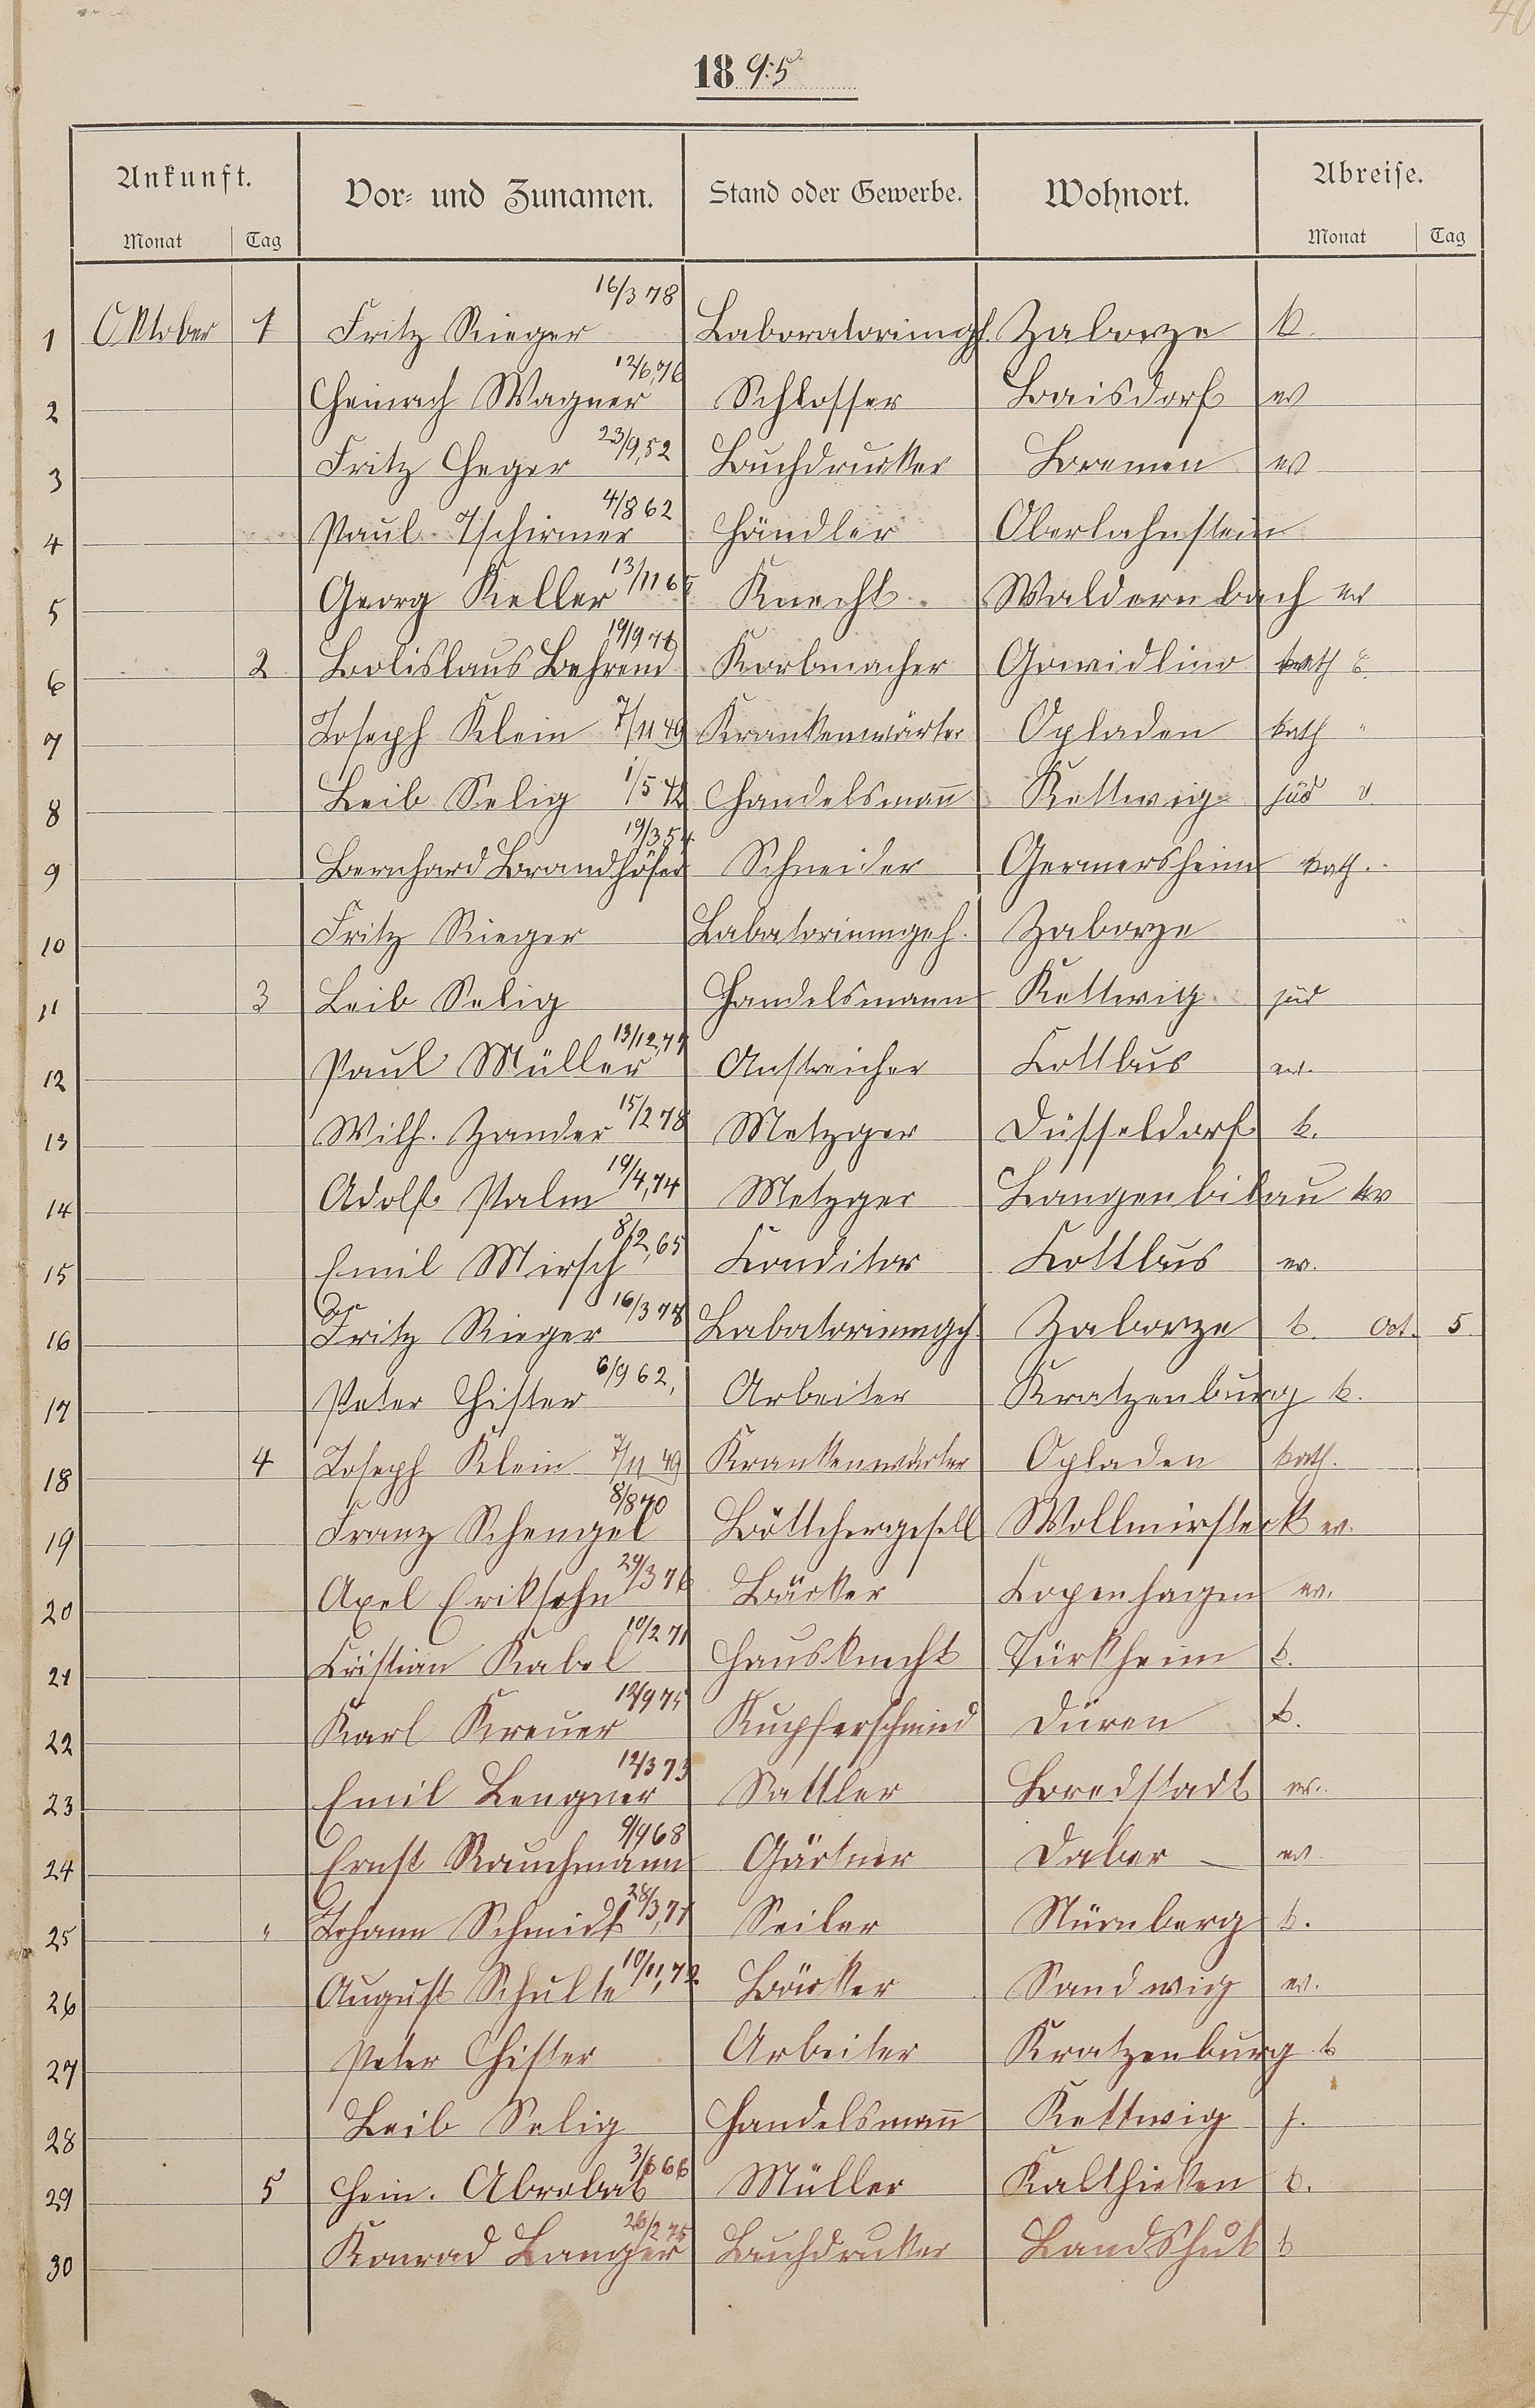 40
1895
Ankunft. Vor- und Zunamen. Stand oder Gewerbe. Wohnort. Abreise.
Monat Tag Monat Tag
1 Oktober 1 Fritz Rieger 16/3 78 Laboratoriumgh. Zaborze k.
2 Heinrich Wagner 12/6,76 Schlosser Baisdorf ev
3 Fritz Heger 23/9,52 Buchdrucker Bremen ev
4 Paul Tschirner 4/8 62 Händler Oberlahnstein
5 Georg Keller 13/11 65 Knecht Waldernbach ev
6 2 Bolislaus Behrend 19/9 74 Korbmacher Gowidlino kath
7 Joseph Klein 7/11 49 Krankenwärter Opladen kath "
8 Leib Selig 1/5 72 Handelsmañ Kettwig jüd
9 Bernhard Brandhöfer 19/3 54 Schneider Germersheim kath.
10 Fritz Rieger Labatoriumgeh. Zaborze
11 3 Leib Selig Handelsmann Kettwig jüd
12 Paul Müller 13/12,77 Anstreicher Cottbus ev.
13 Wilh. Zander 15/2 78 Metzger Düsseldorf k.
14 Adolf Palm 19/4,74 Metzger Langenbilau ev
15 Emil Mirsch 8/2,65 Conditor Cottbus ev.
16 Fritz Rieger 16/3 78 Labatoriumgh. Zaborze k. Oct. 5
17 Peter Hister 6/9 62, Arbeiter Kratzenburg k.
18 4 Joseph Klein 7/11 49 Krankenwärter Opladen kath.
19 Franz Schengel 8/8 70 Böttchergesell Wollmirsteck ev.
20 Axel Eriksohn 29/3 76 Bäcker Copenhagen ev.
21 Cristian Kabel 10/2 71 Hausknecht Türkheim k.
22 Karl Kreuer 12/9 75 Kupferschmied Düren k.
23 Emil Lengner 12/3 73 Sattler Bredstadt ev.
24 Ernst Rauchmann 9/9 68 Gärtner Daber ev.
25 " Johann Schmidt 28/3,77 Seiler Nürnberg k.
26 August Schulte 10/11,72 Bäcker Sandwig ev.
27 Peter Hister Arbeiter Kratzenburg k
28 Leib Selig Handelsmañ Kettwig j.
29 5 Hein. Abrobat 3/6 66 Müller Kalthieken k.
30 Konrad Langer 26/2 75 Buchdrucker Landshut k